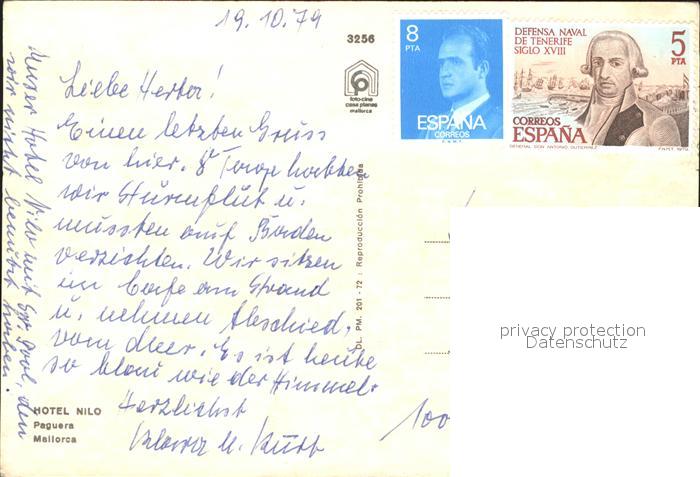 19.10.79
3256
foto-cine
casa planas
mallorca
8
PTA
ESPAÑA
CORREOS
F.N.M.T.
DEFENSA NAVAL
DE TENERIFE
SIGLO XVIII
5
PTA
CORREOS
ESPAÑA
GENERAL DON ANTONIO GUTIERREZ
F.N.M.T. 1979
Liebe Herta!
Einen letzten Gruss
von hier. 8 Tage hatten
wir Sturmflut u.
mussten auf Baden
verzichten. Wir sitzen
im Cafe am Strand
u. nehmen Abschied
vom Meer. Es ist heute
so blau wie der Himmel.
Herzlichst
u. Kurt
Unser Hotel Nilo mit Pool, den
wir nicht benützt haben.
DL. PM. 201 - 72 : Reproducción Prohibida
HOTEL NILO
Paguera
Mallorca
100
privacy protection
Datenschutz